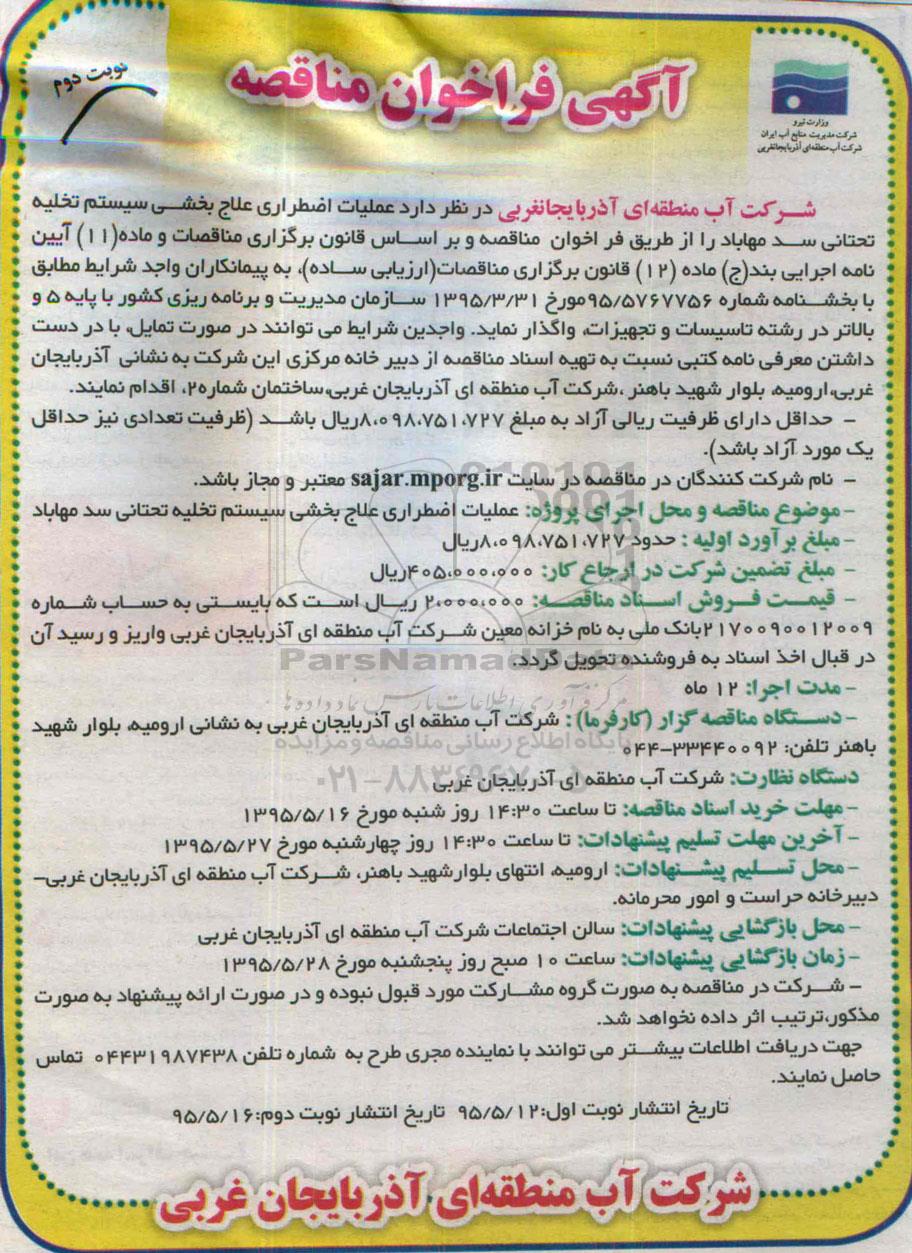 آگهی فراخوان مناقصه
نوبت دوم
وزارت نیرو
شرکت مدیریت منابع آب ایران
شرکت آب منطقه‌ای آذربایجانغربی
شرکت آب منطقه‌ای آذربایجانغربی در نظر دارد عملیات اضطراری علاج بخشی سیستم تخلیه
تحتانی سد مهاباد را از طریق فر اخوان مناقصه و بر اساس قانون برگزاری مناقصات و ماده(۱۱) آیین
نامه اجرایی بند(ج) ماده (۱۲) قانون برگزاری مناقصات(ارزیابی ساده)، به پیمانکاران واجد شرایط مطابق
با بخشنامه شماره ۹۵/۵۷۶۷۷۵۶مورخ ۱۳۹۵/۳/۳۱ سازمان مدیریت و برنامه ریزی کشور با پایه ۵ و
بالاتر در رشته تاسیسات و تجهیزات، واگذار نماید. واجدین شرایط می توانند در صورت تمایل، با در دست
داشتن معرفی نامه کتبی نسبت به تهیه اسناد مناقصه از دبیر خانه مرکزی این شرکت به نشانی آذربایجان
غربی،ارومیه، بلوار شهید باهنر ،شرکت آب منطقه ای آذربایجان غربی،ساختمان شماره۲، اقدام نمایند.
- حداقل دارای ظرفیت ریالی آزاد به مبلغ ۸،۰۹۸،۷۵۱،۷۲۷ریال باشد (ظرفیت تعدادی نیز حداقل
یک مورد آزاد باشد).
- نام شرکت کنندگان در مناقصه در سایت sajar.mporg.ir معتبر و مجاز باشد.
-موضوع مناقصه و محل اجرای پروژه: عملیات اضطراری علاج بخشی سیستم تخلیه تحتانی سد مهاباد
-مبلغ برآورد اولیه : حدود ۸،۰۹۸،۷۵۱،۷۲۷ریال
- مبلغ تضمین شرکت در ارجاع کار: ۴۰۵،۰۰۰،۰۰۰ریال
- قیمت فروش اسناد مناقصه: ۲،۰۰۰،۰۰۰ ریال است که بایستی به حساب شماره
۲۱۷۰۰۹۰۰۱۲۰۰۹بانک ملی به نام خزانه معین شرکت آب منطقه ای آذربایجان غربی واریز و رسید آن
در قبال اخذ اسناد به فروشنده تحویل گردد.
ParsNamadData
-مدت اجرا: ۱۲ ماه
-دستگاه مناقصه گزار (کارفرما) : شرکت آب منطقه ای آذربایجان غربی به نشانی ارومیه، بلوار شهید
باهنر تلفن: ۳۳۴۴۰۰۹۲-۰۴۴
پایگاه اطلاع رسانی مناقصه و مزایده
دستگاه نظارت: شرکت آب منطقه ای آذربایجان غربی
-مهلت خرید اسناد مناقصه: تا ساعت ۱۴:۳۰ روز شنبه مورخ ۱۳۹۵/۵/۱۶
-آخرین مهلت تسلیم پیشنهادات: تا ساعت ۱۴:۳۰ روز چهارشنبه مورخ ۱۳۹۵/۵/۲۷
-محل تسلیم پیشنهادات: ارومیه، انتهای بلوارشهید باهنر، شرکت آب منطقه ای آذربایجان غربی-
دبیرخانه حراست و امور محرمانه.
-محل بازگشایی پیشنهادات: سالن اجتماعات شرکت آب منطقه ای آذربایجان غربی
-زمان بازگشایی پیشنهادات: ساعت ۱۰ صبح روز پنجشنبه مورخ ۱۳۹۵/۵/۲۸
- شرکت در مناقصه به صورت گروه مشارکت مورد قبول نبوده و در صورت ارائه پیشنهاد به صورت
مذکور،ترتیب اثر داده نخواهد شد.
جهت دریافت اطلاعات بیشتر می توانند با نماینده مجری طرح به شماره تلفن ۰۴۴۳۱۹۸۷۴۳۸ تماس
حاصل نمایند.
تاریخ انتشار نوبت اول:۹۵/۵/۱۲ تاریخ انتشار نوبت دوم:۹۵/۵/۱۶
شرکت آب منطقه‌ای آذربایجان غربی